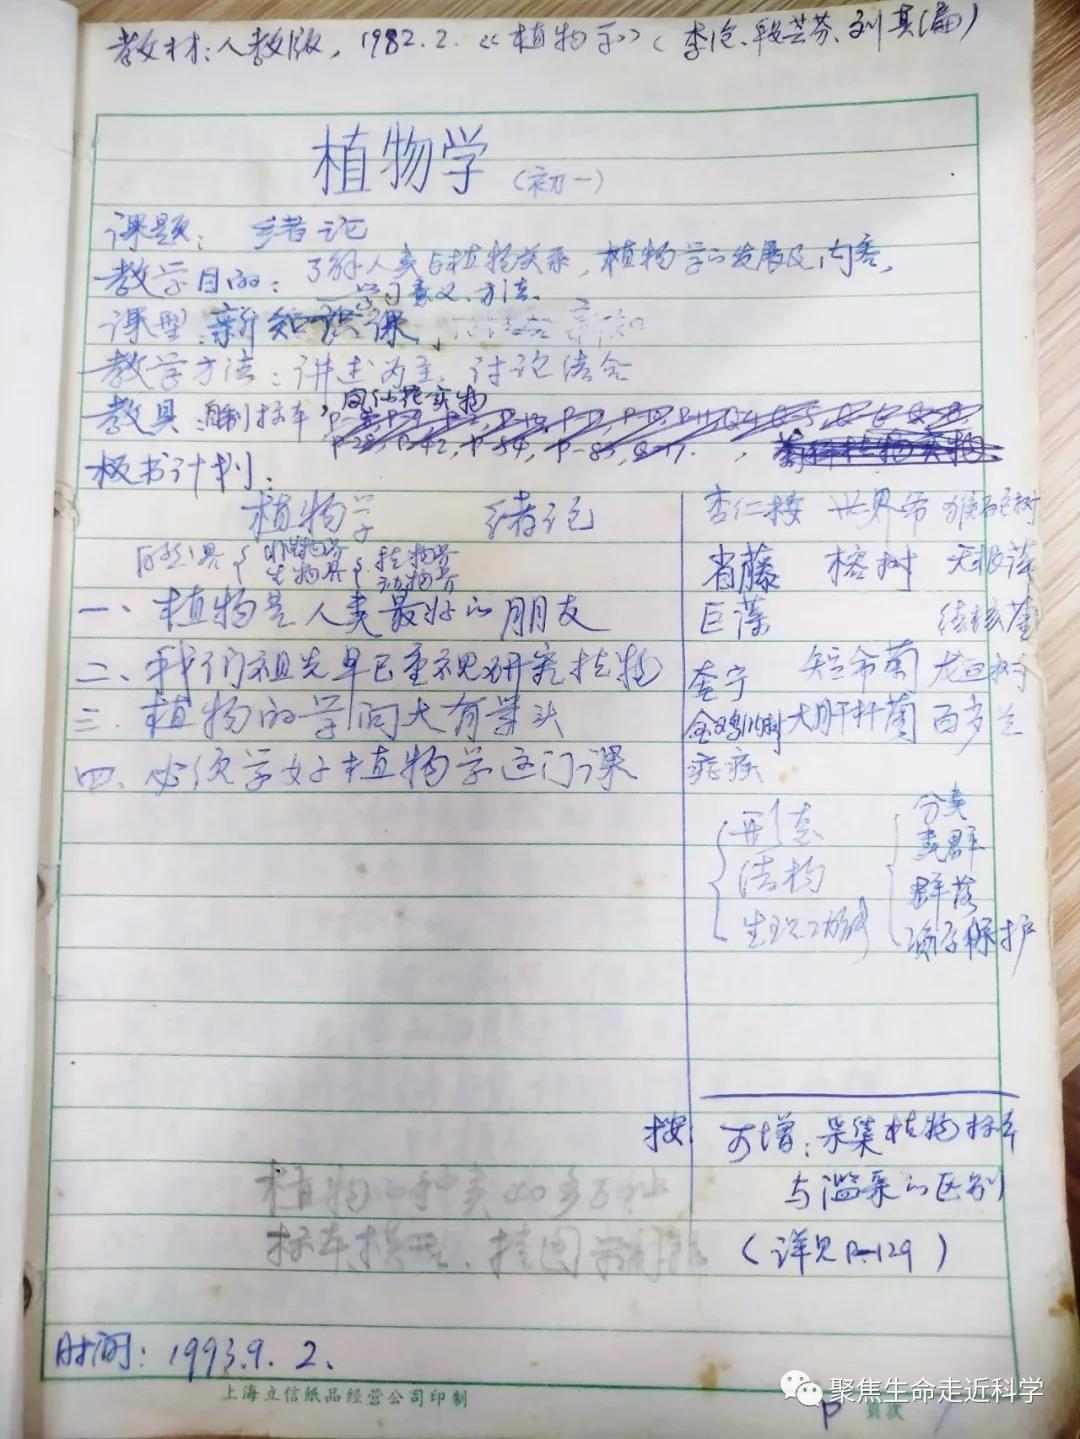 教材：人教版，1982.2.《植物学》（李沧、段芸芬、刘真编）
植物学（初一）
课题：绪论
教学目的：了解人类与植物关系，植物学的发展及内容，
学习意义、方法。
课型：新知识课
教学方法：讲述为主，讨论结合
教具：自制标本，凤仙花实物
板书计划：
植物学 绪论
自然界{非生物界 生物界{植物界 动物界
一、植物是人类最好的朋友
二、我们祖先早已重视研究植物
三、植物的学问大有学头
四、必须学好植物学这门课
杏仁桉 世界爷 猴面包树
省藤 榕树 无根萍
巨藻 结核菌
奎宁 短命菊 龙血树
金鸡纳树 大肝杆菌 百岁兰
疟疾
{形态
结构
生理功能
{分类
类群
群落
资源保护
按 可增：采集植物标本
与滥采的区别
（详见P-129）
植物的种类40多万种
标本模型、挂图
时间：1993.9.2.
上海立信纸品经营公司印制
P 页次
聚焦生命走近科学